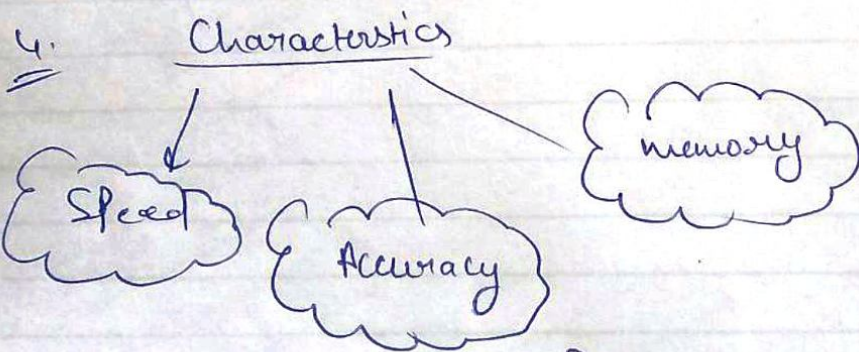 4. Characterstics
Speed
Accuracy
memory